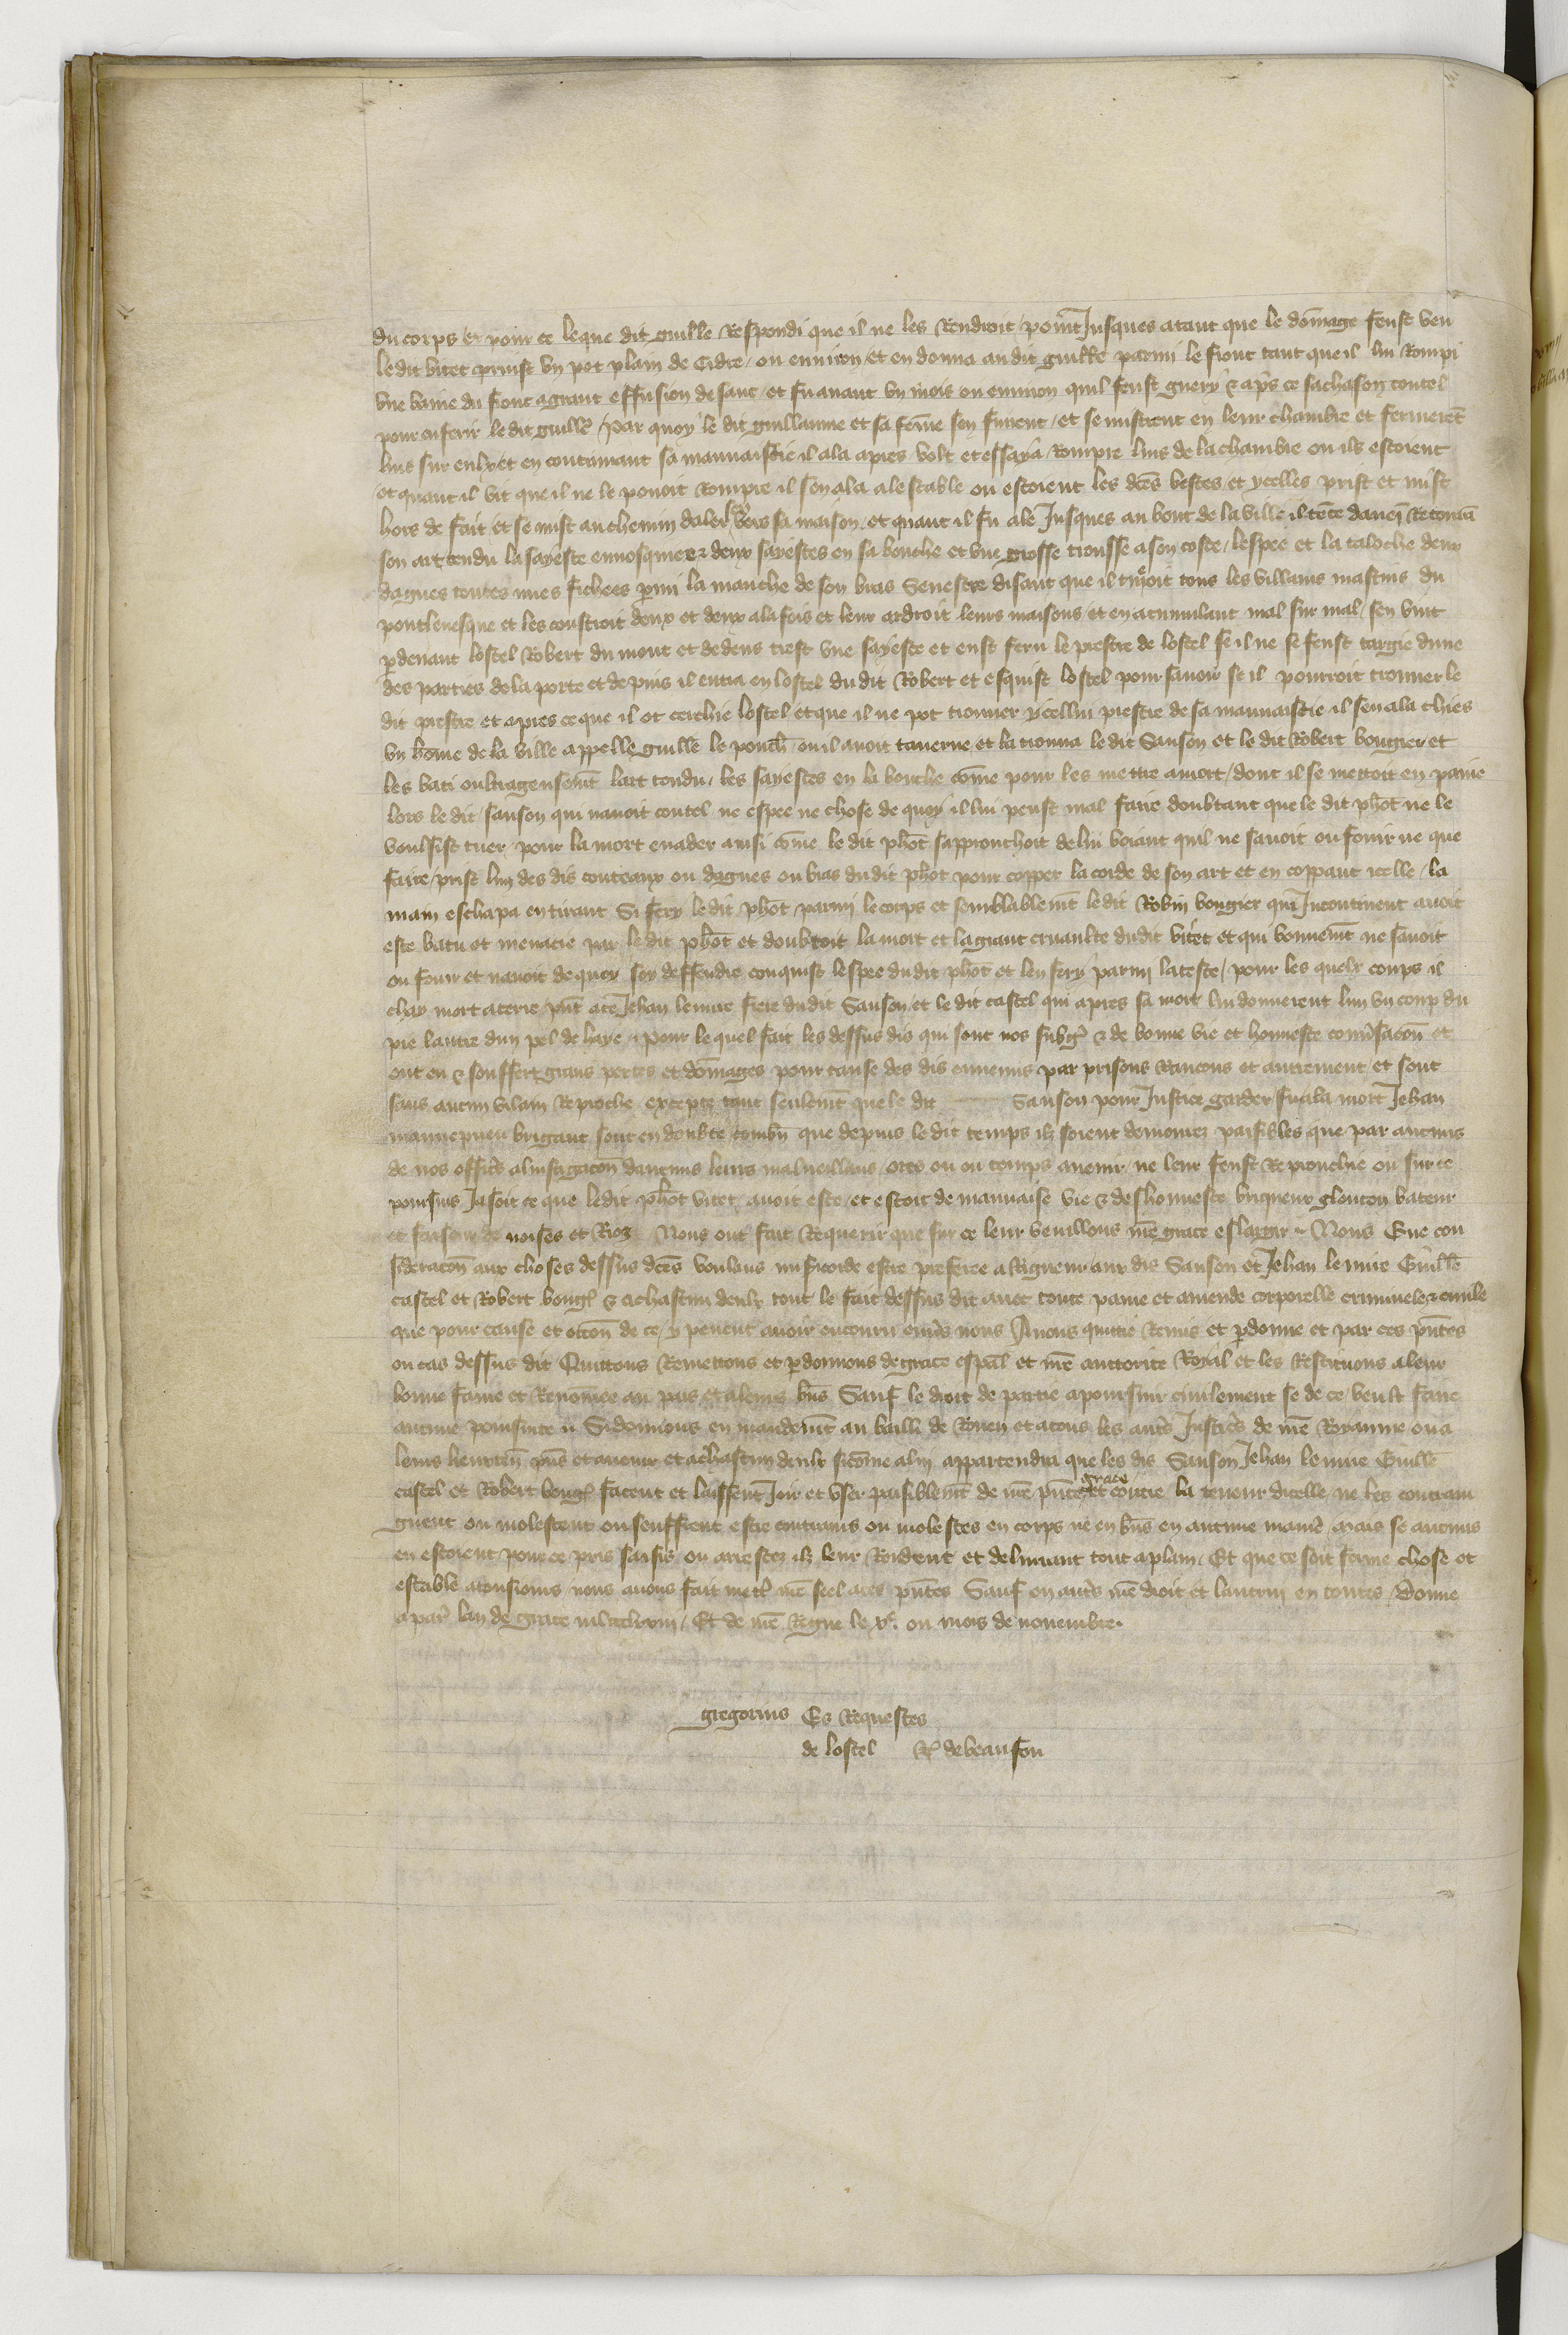 du corps et pour ce le que dit guille Respondi que il ne les Rendroit point Jusques atant que le domage feust veu
ledit vitet prinst un pot plain de cidre ou environ et en donna au dit guille parmi le front tant que il lui Rompi
une vaine du front a grant effusion de sanc et fu avant un mois ou environ quil feust guery & apres ce sacha son coutel
pour en ferir le dit guille Par quoy le dit guillaume et sa feme sen fuirent et se mistrent en leur chambre et fermeret
luis sur eulx et en continuant sa mauvaistie il ala apres volt et essaya Rompre luis de la chambre ou ilz estoient
et quant il vit que il ne le pouoit Rompre il sen ala a lestable ou estoient les dces bestes et ycelles prist et mist
hors de fait et se mist au chemin daler vers sa maison et quant il fu ale Jusques au bout de la ville il Retourna
son arc tendu la sayeste enmosquiee & deux sayestes en sa bouche et une grosse trousse a son coste lespee et la taloche deux
dagues toutes nues fichees parmi la manche de son bras senestre disant que il tueroit tous les villains mastins du
pontlevesque et les coustroit deux et deux a la fois et leur ardroit leurs maisons et en acumulant mal sur mal sen vint
p devant lostel Robert du mont et dedens trest une sayeste et eust feru le prestre de lostel se il ne se feust targie dune
des parties de la porte et depuis il entra en lostel du dit Robert et esquist lostel pour savoir se il pourroit trouver le
dit prestre et apres ce que il ot cerchie lostel et que il ne pot trouver ycellui prestre de sa mauvaistie il sen ala chies
un home de la ville appelle guille le ou il avoit taverne et la trouva le dit Sanson et le dit Robert bougier et
les bati oultrageusemt larc tendu les sayestes en la bouche come pour les mettre a mort dont il se mettoit en paine
lors le dit sanson qui navoit coutel ne espee ne chose de quoy il lui peust mal faire doubtant que le dit phot ne le
voulsist tuer pour la mort evader ainsi come le dit phot sapprouchoit de lui voiant quil ne savoit ou fouir ne que
faire prist lun des dis couteaux ou dagues ou bras du dit phot pour copper la corde de son arc et en coppant icelle la
main eschapa en tirant Si fery le dit phot parmi le corps et semblablemt le dit Robin bougier qui Incontinent avoit
este batu et menacie par le dit phot et doubtoit la mort et la grant cruaulte dudit vitet et qui bonnemt ne savoit
ou fouir et navoit de quoy soy deffendre conquist lespee dudit phot et len fery parmi la teste pour les quelx coups il
chay mort a terre pnt ace Jehan lemire frere dudit Sanson et le dit castel qui apres sa mort lui donnerent lun un coup du
pie lautre dun pel de haye Pour le quel fait les dessus dis qui sont nos subgs & de bonne vie et honneste conversacion et
ont eu & souffert grans pertes et domages pour cause des dis ennemis par prisons Rancons et autrement et sont
sans aucun vilain Reproche excepte tant seulemt que le dit Sanson pour Justice garder fu a la mort Jehan
brigant sont en doubte combn que depuis le dit temps ilz soient demourez paisibles que par aucuns
de nos offics a linstigacon daucuns leurs malveillans ores ou ou temps avenir ne leur feust Reprouchie ou sur ce
poursuis Ja soit ce que ledit phot vitet avoit este et estoit de mauvaise vie & deshonneste glouton bateur
et faiseur de noises et Rioz Nous ont fait Requerir que sur ce leur veuillons nre grace eslargir Nous Eue con
sideracon aux choses dessus dces voulans misericorde estre preferee a Rigueur aux dis Sanson et Jehan le mire Guille
castel et Robert boug & a chascun deulx tout le fait dessus dit avec toute paine et amende corporelle criminele & civile
que pour cause et occon de ce y peuent avoir encouru envers nous Avons quittie Remis et pardonne et par ces pntes
ou cas dessus dit Quittons Remettons et pardonnons de grace espal et nre auctorite Royal et les Restituons a leur
bonne fame et Renomee au pais et a leurs bns Sauf le droit de partie a poursuir civilement se de ce veult faire
aucune poursuite Si donnons en mandemt au bailli de Rouen et a tous les autres Justices de nre Royaume ou a
leurs lieuten pns et avenir et a chascun deulx sicome a lui appartendra que les dis Sanson Jehan le mire Guille
castel et Robert boug facent et laissent Joir et user paisiblemt de nre pnte grace et contre la teneur dicelle ne les contrain
gnent ou molestent ou seuffrent estre contrains ou molestes en corps ne en bns en aucune manie Mais se aucuns
en estoient pour ce pris saisis ou arrestez ilz leur Rendent et delivrent tout a plain Et que ce soit ferme chose et
estable a tousiours nous avons fait mett nre seel a ces pntes Sauf en autrs nre droit et lautrui en toutes Donne
a paris lan de grace mil ccclxviii Et de nre Regne le ve. ou mois de novembre.
gregorius Es Requestes
de lostel R debeaufou